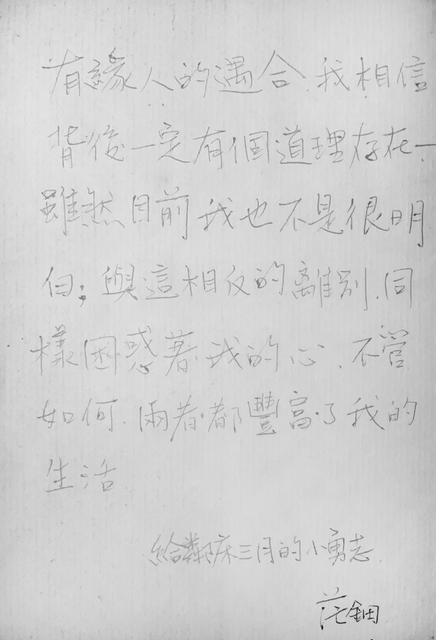 有緣人的遇合.我相信
背後一定有個道理存在一
雖然目前我也不是很明
白;與這相反的離別.同
樣困惑著我的心.不管
如何.兩者都豐富了我的
生活
給鄰床三月的小勇志.